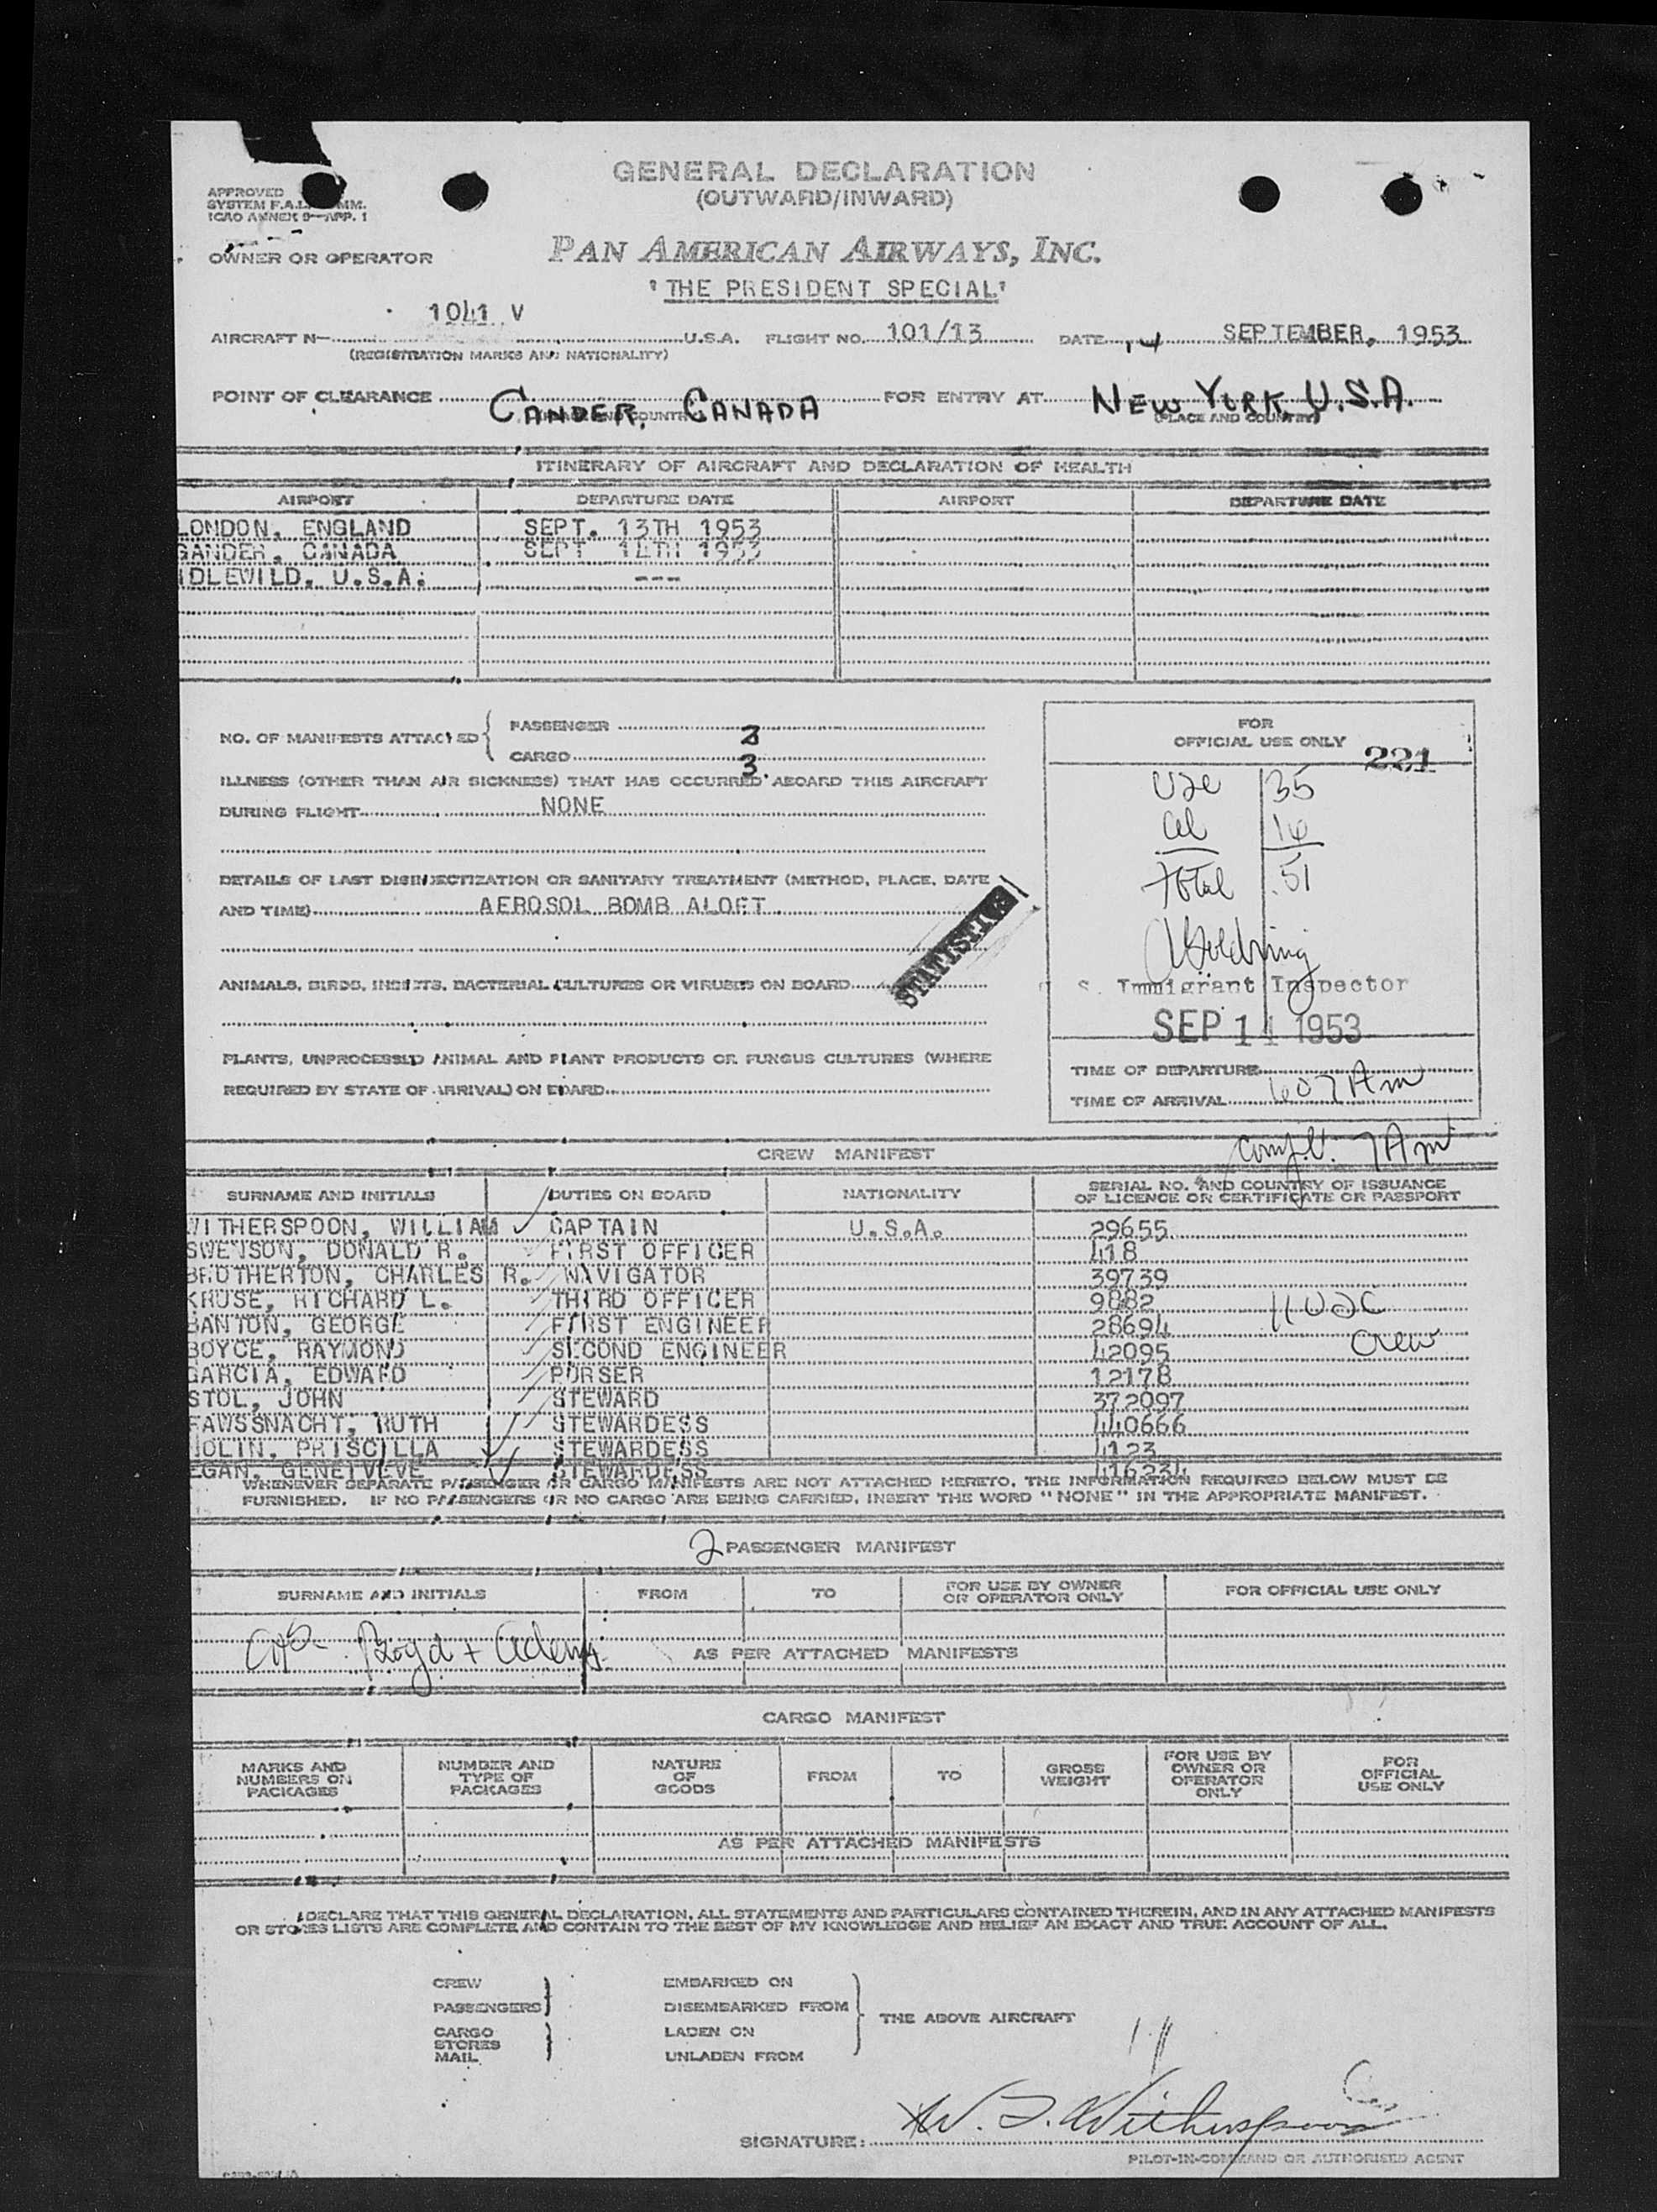 GENERAL DECLARATION
(OUTWARD/INWARD)
APPROVED
SYSTEM F.A.L. COMM.
ICAO ANNEX 9—APP. 1
OWNER OR OPERATOR
PAN AMERICAN AIRWAYS, INC.
'THE PRESIDENT SPECIAL'
AIRCRAFT N— 1041 V U.S.A. FLIGHT NO. 101/13 DATE 14 SEPTEMBER, 1953
(REGISTRATION MARKS AND NATIONALITY)
POINT OF CLEARANCE GANDER, CANADA FOR ENTRY AT NEW YORK U.S.A.
(PLACE AND COUNTRY)
ITINERARY OF AIRCRAFT AND DECLARATION OF HEALTH
AIRPORT DEPARTURE DATE AIRPORT DEPARTURE DATE
LONDON, ENGLAND SEPT. 13TH 1953
GANDER, CANADA SEPT 14TH 1953
IDLEWILD, U.S.A. ---
NO. OF MANIFESTS ATTACHED { PASSENGER 2
CARGO 3
ILLNESS (OTHER THAN AIR SICKNESS) THAT HAS OCCURRED ABOARD THIS AIRCRAFT
DURING FLIGHT NONE
DETAILS OF LAST DISINSECTIZATION OR SANITARY TREATMENT (METHOD, PLACE, DATE
AND TIME) AEROSOL BOMB ALOFT
STATISTICS
ANIMALS, BIRDS, INSECTS, BACTERIAL CULTURES OR VIRUSES ON BOARD
PLANTS, UNPROCESSED ANIMAL AND PLANT PRODUCTS OR FUNGUS CULTURES (WHERE
REQUIRED BY STATE OF ARRIVAL) ON BOARD
FOR
OFFICIAL USE ONLY
221
USC 35
al 16
total 51
S. Immigrant Inspector
SEP 14 1953
TIME OF DEPARTURE
TIME OF ARRIVAL 607 Am
compl. 7Am
CREW MANIFEST
SURNAME AND INITIALS DUTIES ON BOARD NATIONALITY SERIAL NO. AND COUNTRY OF ISSUANCE
OF LICENCE OR CERTIFICATE OR PASSPORT
WITHERSPOON, WILLIAM CAPTAIN U.S.A. 29655
SWENSON, DONALD R. FIRST OFFICER 418
BROTHERTON, CHARLES R. NAVIGATOR 39739
KRUSE, RICHARD L. THIRD OFFICER 9882 11 USC
BANTON, GEORGE FIRST ENGINEER 28694
BOYCE, RAYMOND SECOND ENGINEER 42095 Crew
GARCIA, EDWARD PURSER 12178
STOL, JOHN STEWARD 372097
FAWSSNACHT, RUTH STEWARDESS 440666
NOLIN, PRISCILLA STEWARDESS 4123
EGAN, GENEIVEVE STEWARDESS 416234
WHENEVER SEPARATE PASSENGER OR CARGO MANIFESTS ARE NOT ATTACHED HERETO, THE INFORMATION REQUIRED BELOW MUST BE
FURNISHED. IF NO PASSENGERS OR NO CARGO ARE BEING CARRIED, INSERT THE WORD "NONE" IN THE APPROPRIATE MANIFEST.
2 PASSENGER MANIFEST
SURNAME AND INITIALS FROM TO FOR USE BY OWNER
OR OPERATOR ONLY FOR OFFICIAL USE ONLY
Boyd +
AS PER ATTACHED MANIFESTS
CARGO MANIFEST
MARKS AND
NUMBERS ON
PACKAGES NUMBER AND
TYPE OF
PACKAGES NATURE
OF
GOODS FROM TO GROSS
WEIGHT FOR USE BY
OWNER OR
OPERATOR
ONLY FOR
OFFICIAL
USE ONLY
AS PER ATTACHED MANIFESTS
I DECLARE THAT THIS GENERAL DECLARATION, ALL STATEMENTS AND PARTICULARS CONTAINED THEREIN, AND IN ANY ATTACHED MANIFESTS
OR STORES LISTS ARE COMPLETE AND CONTAIN TO THE BEST OF MY KNOWLEDGE AND BELIEF AN EXACT AND TRUE ACCOUNT OF ALL.
CREW EMBARKED ON
PASSENGERS DISEMBARKED FROM
THE ABOVE AIRCRAFT
CARGO LADEN ON
STORES
MAIL UNLADEN FROM
SIGNATURE: W. Witherspoon
PILOT-IN-COMMAND OR AUTHORISED AGENT